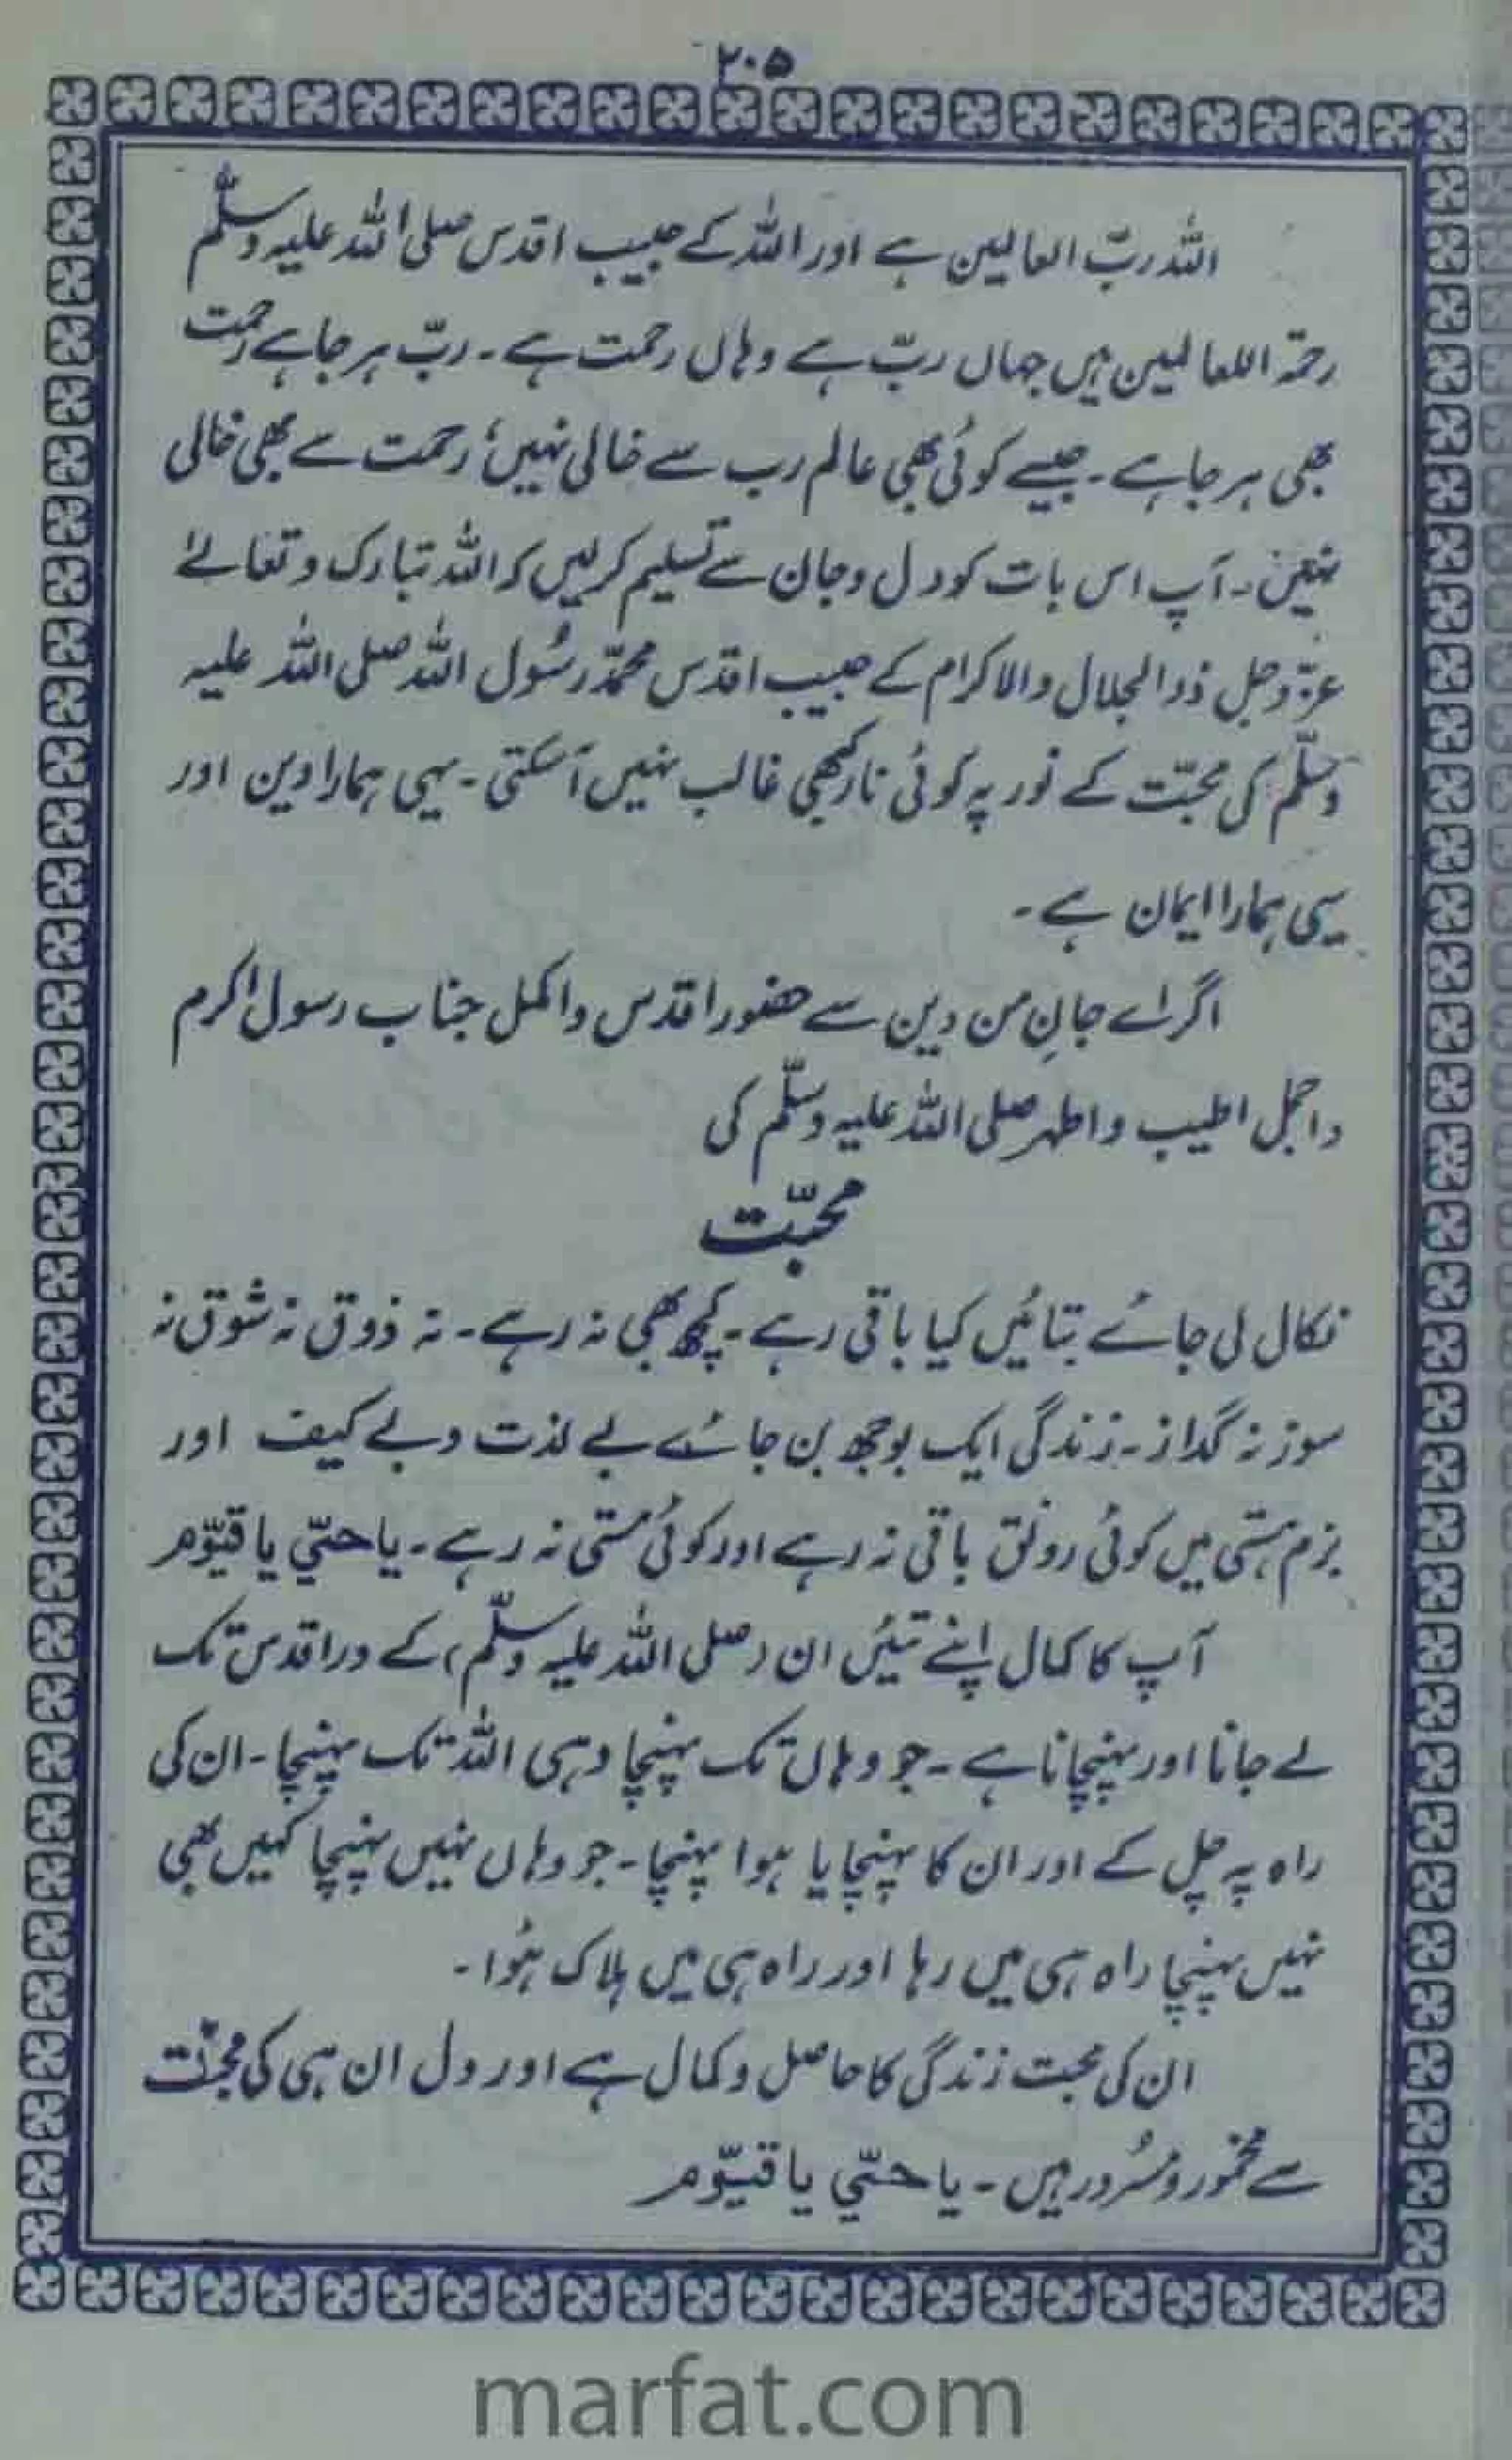 ۲۰۵
اللہ ربّ العالمین ہے اور اللہ کے حبیب اقدس صلی اللہ علیہ وسلّم
رحمۃ اللعالمین ہیں جہاں ربّ ہے وہاں رحمت ہے ۔ ربّ ہر جا ہے رحمت
بھی ہر جا ہے ۔ جیسے کوئی بھی عالم رب سے خالی نہیں، رحمت سے بھی خالی
نہیں ۔ آپ اس بات کو دل و جان سے تسلیم کر لیں کہ اللہ تبارک و تعالےٰ
عزّ و جل ذوالجلال والاکرام کے حبیب اقدس محمّد رسُول اللہ صلی اللہ علیہ
وسلّم کی محبّت کے نور پہ کوئی نار کبھی غالب نہیں آ سکتی ۔ یہی ہمارا دین اور
یہی ہمارا ایمان ہے ۔
اگر اے جانِ من دین سے حضور اقدس و اکمل جناب رسول اکرم
و اجمل اطیب و اطہر صلی اللہ علیہ وسلّم کی
محبّت
نکال لی جائے بتائیں کیا باقی رہے ۔ کچھ بھی نہ رہے ۔ نہ ذوق نہ شوق نہ
سوز نہ گداز ۔ زندگی ایک بوجھ بن جائے بے لذت و بے کیف اور
بزم ہستی میں کوئی رونق باقی نہ رہے اور کوئی مستی نہ رہے ۔ یا حیّی یا قیّوم
آپ کا کمال اپنے تئیں ان (صلی اللہ علیہ وسلّم) کے در اقدس تک
لے جانا اور پہنچانا ہے ۔ جو وہاں تک پہنچا وہی اللہ تک پہنچا ۔ ان کی
راہ پہ چل کے اور ان کا پہنچایا ہوا پہنچا ۔ جو وہاں نہیں پہنچا کہیں بھی
نہیں پہنچا راہ ہی میں رہا اور راہ ہی میں ہلاک ہُوا ۔
ان کی محبت زندگی کا حاصل و کمال ہے اور دل ان ہی کی محبّت
سے مخمور و مسُرور ہیں ۔ یا حیّی یا قیّوم
marfat.com